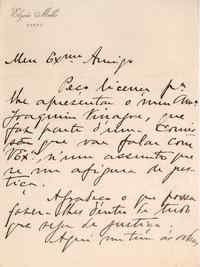 Elyzio de Mello
Meu Exmo Amigo
Peço licença pª
lhe apresentar o meu Amº
Joaquim Vinagre, que
faz parte d'uma Comis
são que vai falar com
V. Exª, n'um assunto que
se me afigura de jus-
tiça.
Agradeço o que possa
fazer-lhes dentro de tudo
que seja de justiça.
Aqui me tem ás ordens